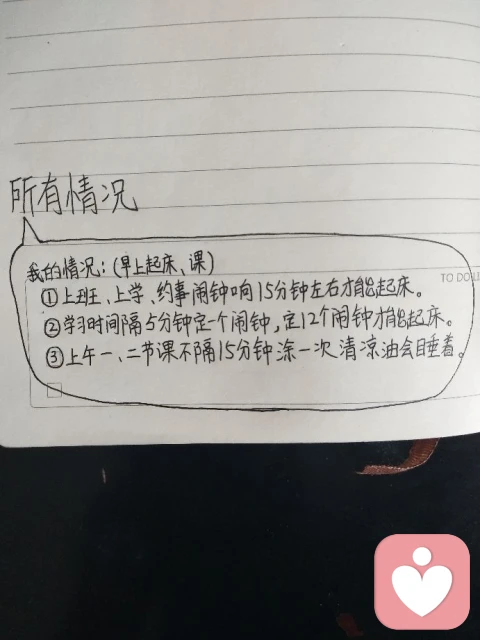 所有情况
我的情况：(早上起床、课)
TO DO LI
①上班、上学、约事闹钟响15分钟左右才能起床。
②学习时间隔5分钟定一个闹钟，定12个闹钟才能起床。
③上午一、二节课不隔15分钟涂一次清凉油会睡着。